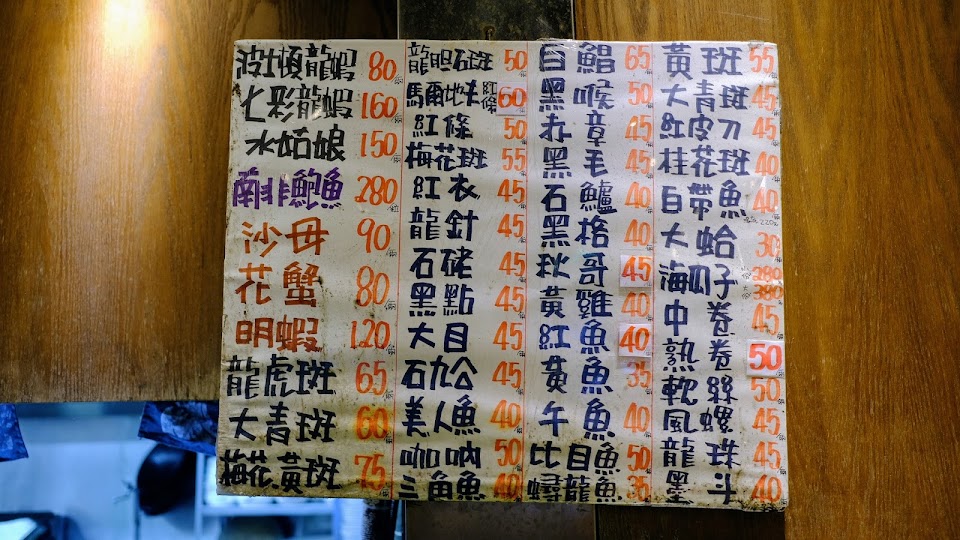 波士頓龍蝦 80
七彩龍蝦 160
水姑娘 150
南非鮑魚 280
沙母 90
花蟹 80
明蝦 120
龍虎斑 65
大青斑 60
梅花黃斑 75
龍胆石斑 50
馬爾地夫紅條 60
紅條 50
梅花斑 55
紅衣 45
龍針 45
石硓 45
黑點 45
大目 45
石九公 45
美人魚 40
咖吶 50
三角魚 40
白鯧 65
黑喉 50
赤章 45
黑毛 45
石鱸 40
黑格 40
秋哥 45
黃雞 40
紅魚 40
黃魚 35
午魚 40
比目魚 50
蟳龍魚 35
黃斑 55
大青斑 45
紅皮刀 45
桂花斑 40
白帶魚 40
大蛤 30
海瓜子 280
380
中卷 45
熟卷 50
軟絲 50
風螺 45
龍珠 45
墨斗 40